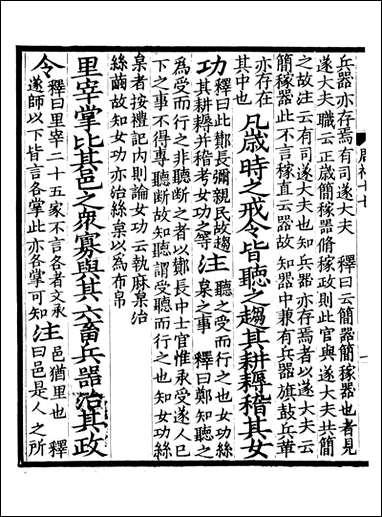 兵器亦存焉有司遂大夫　釋曰云簡器簡稼器也者見
遂大夫職云正歲簡稼器脩稼政則此官與遂大夫共簡
之故注云有司遂大夫也知兵器亦存焉者以遂大夫云
簡稼器此不言稼直云器故知器中兼有兵器旗鼓兵革
亦存在
其中也
凡歲時之戒令皆聽之趨其耕耨稽其女
功
釋曰此酇長彌親民故趨
其耕耨并稽考女功之等
注
聽之受而行之也女功絲
枲之事　釋曰鄭知聽之
為受而行之非聽斷之者以酇長中士官惟承受遂人已
下之事不得專聽斷故知聽謂受聽而行之也知女功絲
枲者按禮記內則論女功云執麻枲治
絲繭故知女功亦治絲枲以為布帛
里宰掌比其邑之衆寡與其六畜兵器治其政
令
釋曰里宰二十五家不言各者文承
遂師以下皆言各掌此亦各掌可知
注
邑猶里也　釋
曰邑是人之所